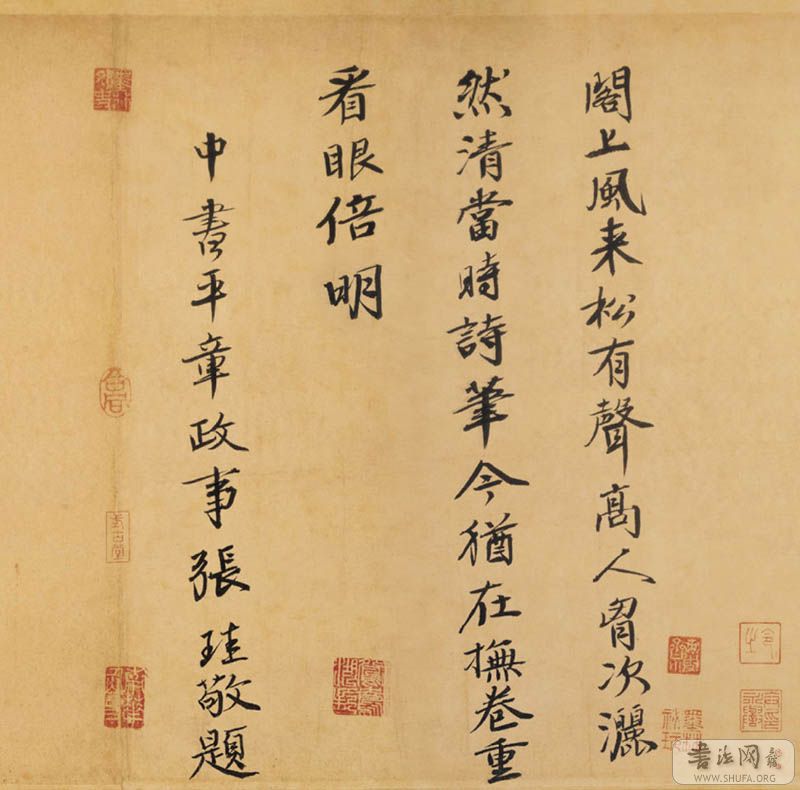 閣上風来松有聲高人胷次灑
然清當時詩筆今猶在撫卷重
看眼倍明
中書平章政事張珪敬題
書法网
WWW.SHUFA.ORG